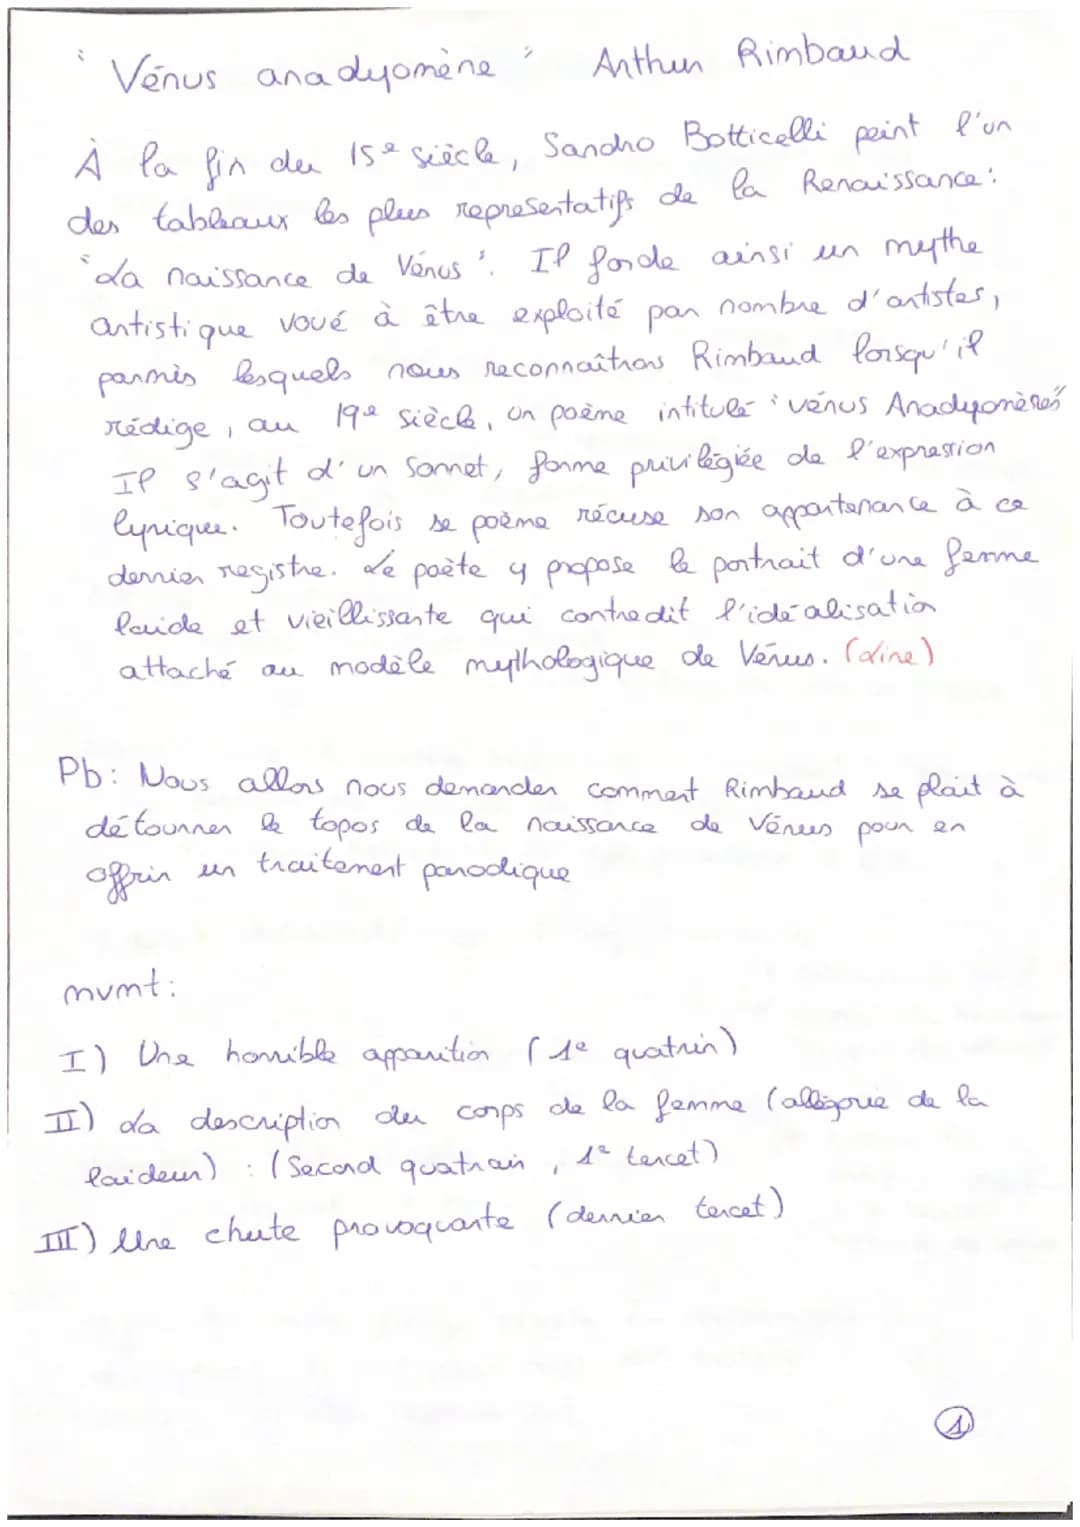 "Vénus anadyomène" Arthur Rimbaud
À la fin du 15e siècle, Sandro Botticelli peint l'un
des tableaux les plus representatifs de la Renaissance:
"La naissance de Vénus". Il fonde ainsi un mythe
artistique voué à être exploité par nombre d'artistes,
parmis lesquels nous reconnaîtrons Rimbaud lorsqu'il
rédige, au 19e siècle, un poème intitulé "vénus Anadyomènes"
Il s'agit d'un sonnet, forme privilégiée de l'expression
lyrique. Toutefois se poème récuse son appartenance à ce
dernier registre. Le poète y propose le portrait d'une femme
laide et vieillissante qui contredit l'idéalisation
attaché au modèle mythologique de Vénus. (Lire)
Pb: Nous allons nous demander comment Rimbaud se plait à
détourner le topos de la naissance de Vénus pour en
offrir un traitement parodique
mvmt:
I) Une horrible apparition (1e quatrin)
II) La description du corps de la femme (allégorie de la
laideur) : (Second quatrain, 1e tercet)
III) Une chute provoquante (dernier tercet)
1